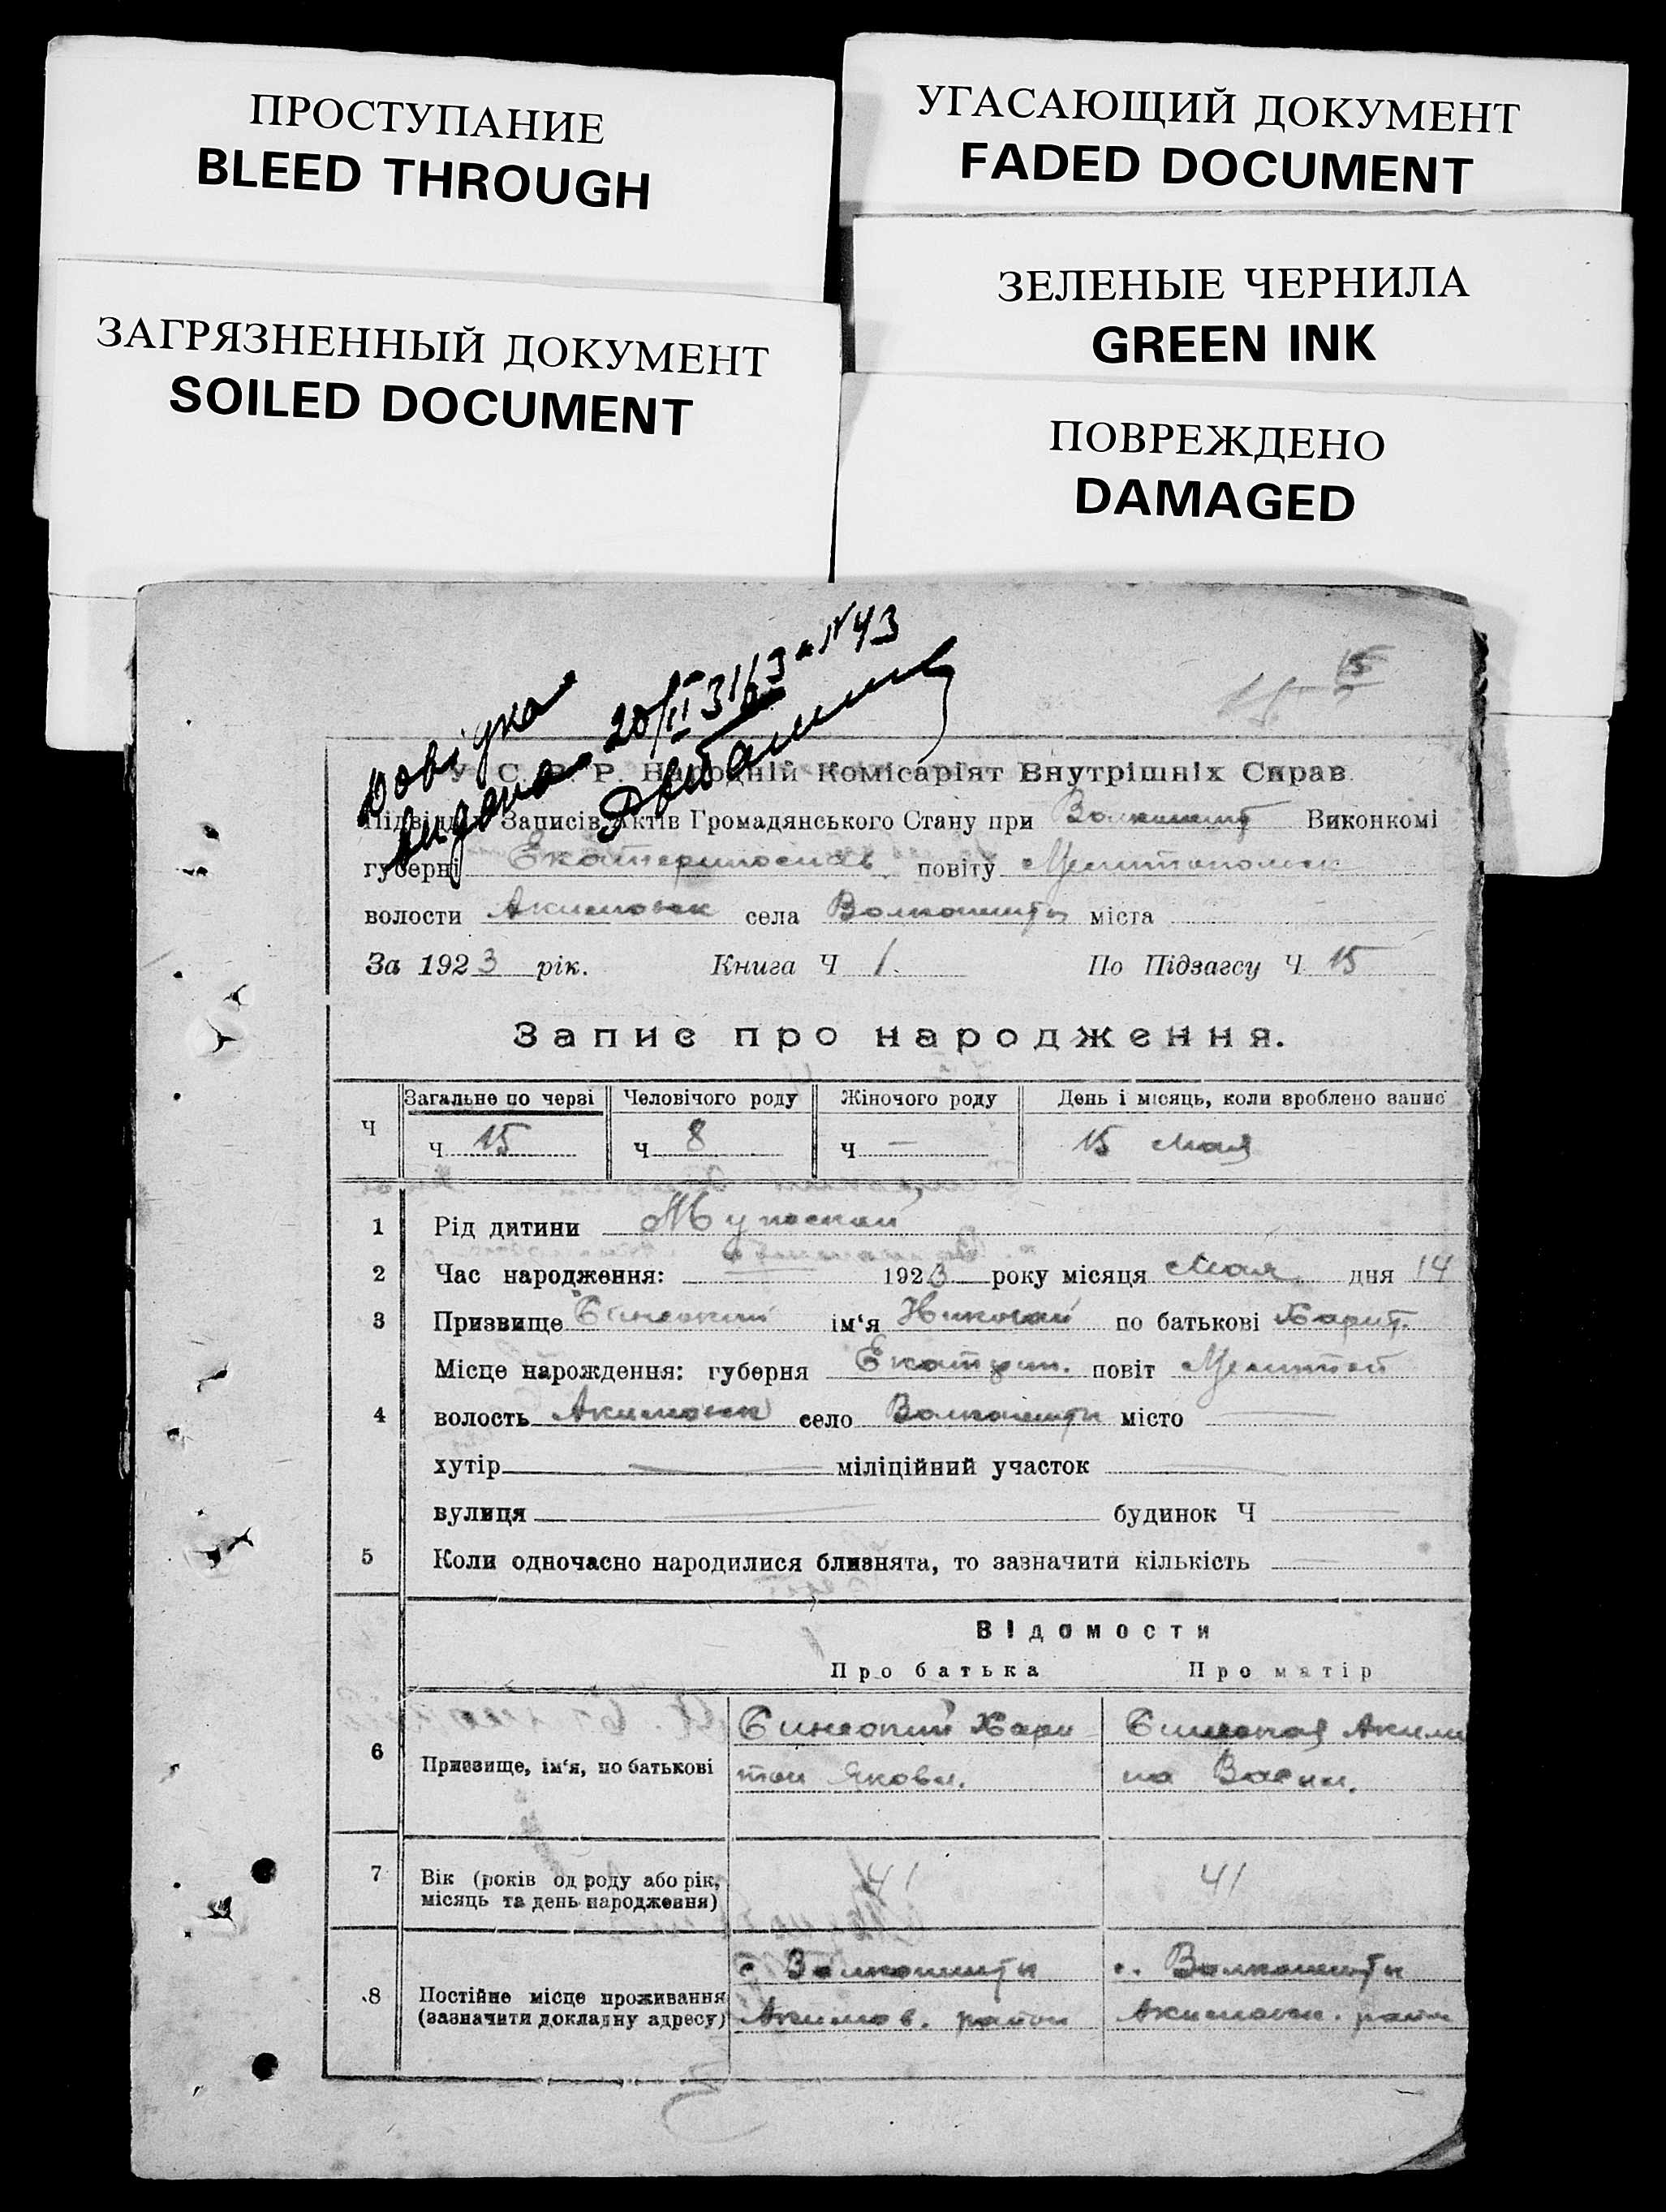 ПРОСТУПАНИЕ
BLEED THROUGH
ЗАГРЯЗНЕННЫЙ ДОКУМЕНТ
SOILED DOCUMENT
УГАСАЮЩИЙ ДОКУМЕНТ
FADED DOCUMENT
ЗЕЛЕНЫЕ ЧЕРНИЛА
GREEN INK
ПОВРЕЖДЕНО
DAMAGED
Довідка
видана 20/II 31 №43
15 15
У. С. Р. Р. Народній Комісаріят Внутрішніх Справ
Підвідділ Записів Актів Громадянського Стану при Виконкомі
губерні Екатеринослав повіту Мелитопольск
волости Акимовск села Волканешты міста
За 1923 рік. Книга Ч 1. По Підзагсу Ч 15
Запис про народження.
Ч Загальне по черзі Человічого роду Жіночого роду День і місяць, коли вроблено запис
Ч 15 Ч 8 Ч — 15 мая
1 Рід дитини Мужской
2 Час народження: 1923 року місяця мая дня 14
3 Призвище ім‘я Николай по батькові Харит.
Місце народження: губерня Екатерин. повіт Мелитоп
4 волость Акимовск село Волканешты місто —
хутір — міліційний участок —
вулиця — будинок Ч —
5 Коли одночасно народилися близнята, то зазначити кількість —
Відомости
Про батька Про матір
6 Призвище, ім‘я, по батькові Харитон Яковл. Акилина Васил.
7 Вік (років од роду або рік, місяць та день народження) 41 41
8 Постійне місце проживання (зазначити докладну адресу) с. Волканешты Акимов. район с. Волканешты Акимовск. район